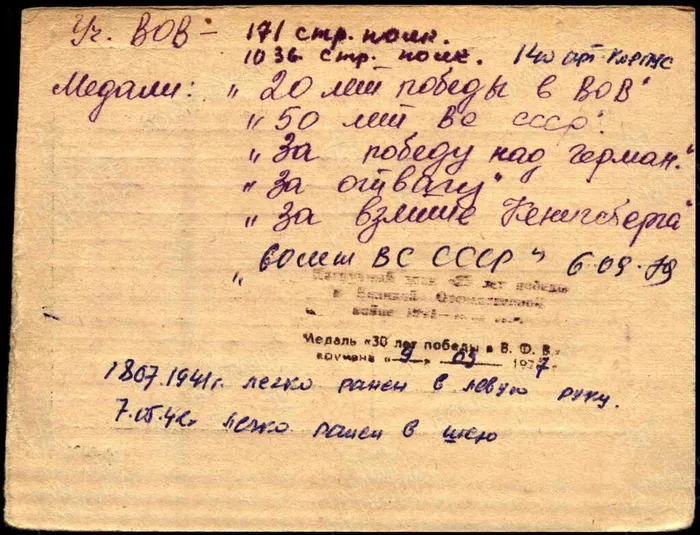 Уч. ВОВ – 171 стр. полк.
1036 стр. полк. 140 арт. корпус
Медали: „20 лет победы в ВОВ"
„50 лет ВС СССР".
„За победу над Герман."
„За отвагу"
„За взятие Кенигсберга"
„60 лет ВС СССР" 6.09.79
лет победы
в Великой Отечественной
войне
Медаль «30 лет победы в В. Ф. В.»
вручена «9» 05 1977
18.07.1941г. легко ранен в левую руку.
7.05.42г легко ранен в шею